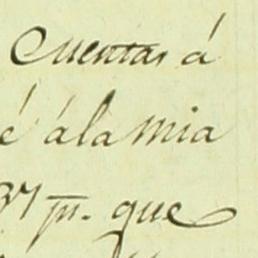 Cuentas á
é á la mia
37 m. que